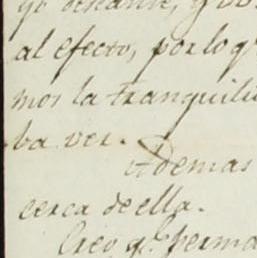 al efecto, por lo q.
mos la tranquili
ba ver.
Ademas
cerca de ella.
Creo q.e perma